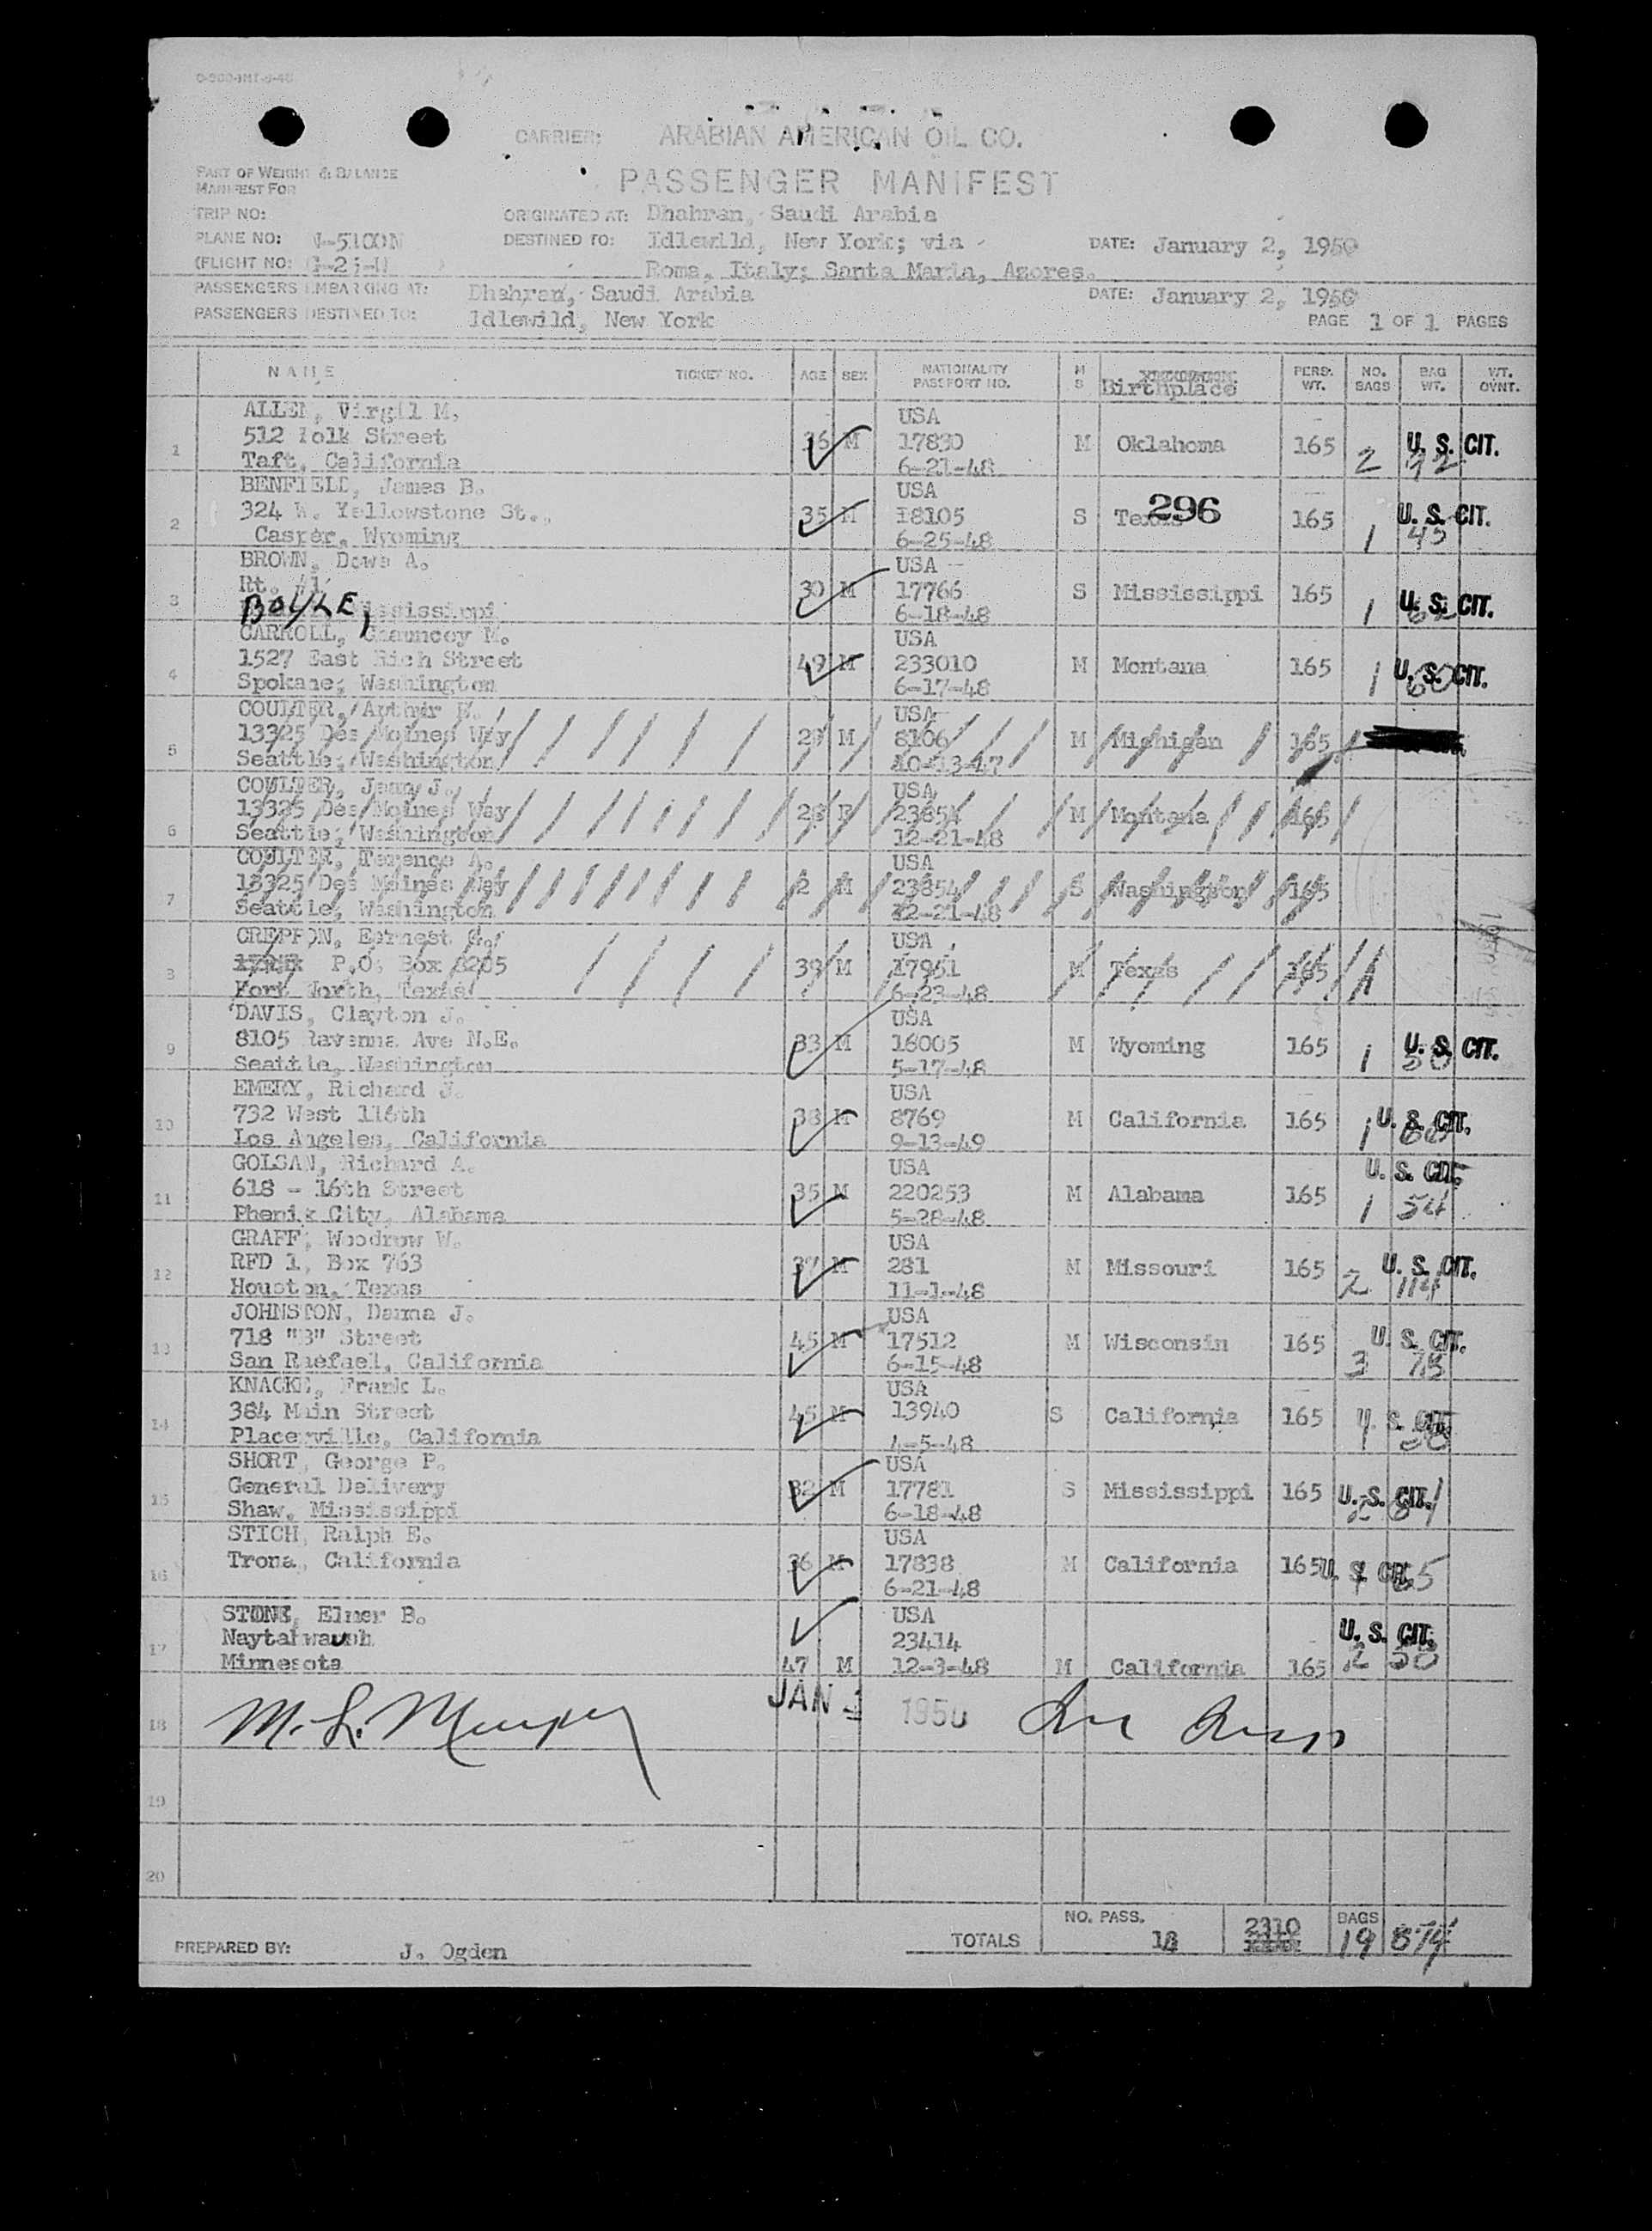 CARRIER: ARABIAN AMERICAN OIL CO.
PART OF WEIGHT & BALANCE
MANIFEST FOR
PASSENGER MANIFEST
TRIP NO:
ORIGINATED AT: Dhahran, Saudi Arabia
PLANE NO: N-5100N
DESTINED TO: Idlewild, New York; via
DATE: January 2, 1950
(FLIGHT NO: )
Roma, Italy; Santa Maria, Azores.
PASSENGERS EMBARKING AT: Dhahran, Saudi Arabia
DATE: January 2, 1950
PASSENGERS DESTINED TO: Idlewild, New York
PAGE 1 OF 1 PAGES
NAME TICKET NO. AGE SEX NATIONALITY PASSPORT NO. M S Birthplace PERS. WT. NO. BAGS BAG WT. WT. OVNT.
ALLEN, Virgil M. USA
1 512 Polk Street 36 M 17830 M Oklahoma 165 2 U. S. CIT.
Taft, California 6-21-48
BENFIELD, James B. USA
2 324 W. Yellowstone St., 35 M 18105 S Texas 296 165 1 45 U. S. CIT.
Casper, Wyoming 6-25-48
BROWN, Dowe A. USA
3 Rt. #1 30 M 17766 S Mississippi 165 1 U. S. CIT.
BOYLE, Mississippi 6-18-48
CARROLL, Chauncey M. USA
4 1527 East Rich Street 49 M 233010 M Montana 165 1 60 U. S. CIT.
Spokane, Washington 6-17-48
COULTER, Arthur E. USA
5 13325 Des Moines Way 29 M 8106 M Michigan 165
Seattle, Washington 10-13-47
COULTER, Jean J. USA
6 13325 Des Moines Way 28 F 23854 M Montana 165
Seattle, Washington 12-21-48
COULTER, Terence A. USA
7 13325 Des Moines Way 2 M 23854 S Washington 165
Seattle, Washington 12-21-48
CREPPON, Earnest C. USA
8 P.O. Box 8205 39 M 17951 M Texas 165
Fort Worth, Texas 6-23-48
DAVIS, Clayton J. USA
9 8105 Ravenna Ave N.E. 33 M 16005 M Wyoming 165 1 U. S. CIT.
Seattle, Washington 5-17-48
EMERY, Richard J. USA
10 732 West 116th 38 M 8769 M California 165 1 U. S. CIT.
Los Angeles, California 9-13-49
GOLSAN, Richard A. USA U. S. CIT.
11 618 - 16th Street 35 M 220253 M Alabama 165 1 54
Phenix City, Alabama 5-28-48
GRAFF, Woodrow W. USA
12 RFD 1, Box 763 37 M 281 M Missouri 165 2 114 U. S. CIT.
Houston, Texas 11-1-48
JOHNSTON, Dama J. USA
13 718 "B" Street 45 M 17512 M Wisconsin 165 3 78 U. S. CIT.
San Raefael, California 6-15-48
KNACKE, Frank L. USA
14 384 Main Street 45 M 13940 S California 165 1 U. S. CIT.
Placerville, California 4-5-48
SHORT, George P. USA
15 General Delivery 32 M 17781 S Mississippi 165 2 U. S. CIT.
Shaw, Mississippi 6-18-48
STICH, Ralph E. USA
16 Trona, California 36 M 17838 M California 165 1 U. S. CIT.
6-21-48
STONE, Elmer B. USA
17 Naytahwaush 23414 U. S. CIT.
Minnesota 47 M 12-3-48 M California 165 2 50
18 JAN 1950
19
20
PREPARED BY: J. Ogden
TOTALS NO. PASS. 13 2310 BAGS 19 874